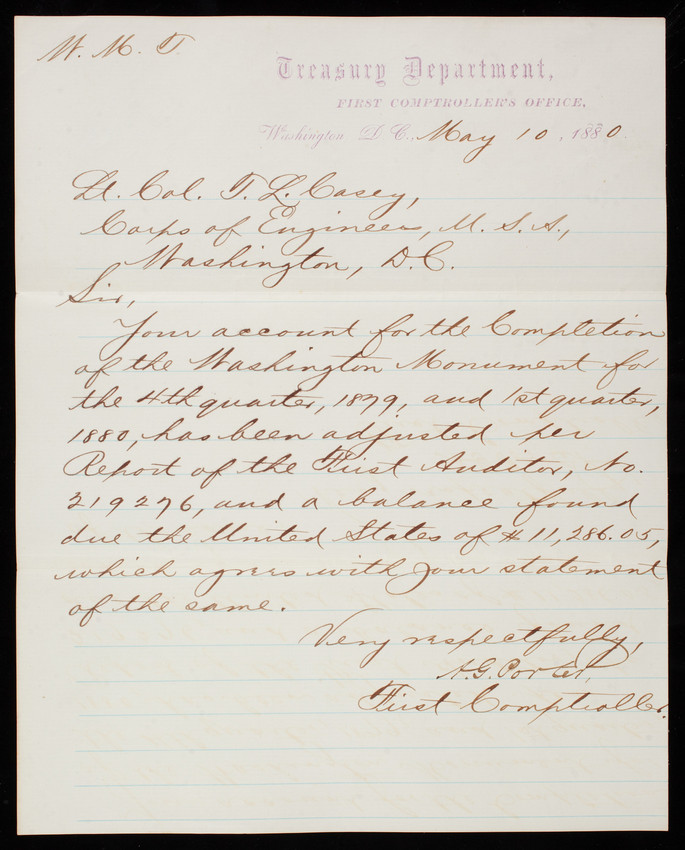 W. M. T.
Treasury Department,
FIRST COMPTROLLER'S OFFICE,
Washington D. C., May 10, 1880.
Lt. Col. T. L. Casey,
Corps of Engineers, U. S. A.,
Washington, D.C.
Sir,
Your account for the Completion
of the Washington Monument for
the 4th quarter, 1879, and 1st quarter,
1880, has been adjusted per
Report of the First Auditor, No.
219276, and a balance found
due the United States of $11,286.05,
which agrees with your statement
of the same.
Very respectfully,
A.G. Porter,
First Comptroller.